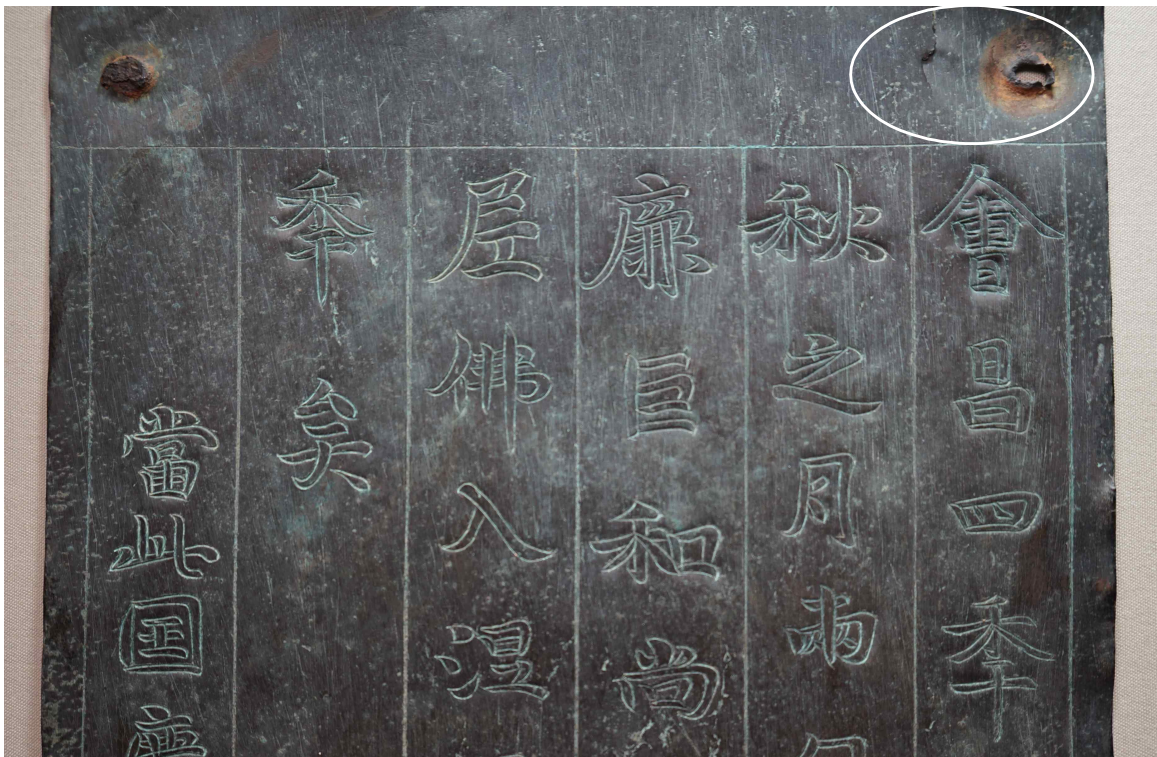 會昌四季
秋之月兩
和尚
尼佛入涅
季矣
當此国